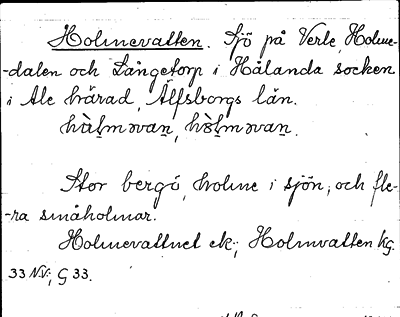 Holmevatten. Sjö på Verle, Holme-
-dalen och Långetorp i Hålanda socken
i Ale härad, Älfsborgs län.
Stor bergö, holme i sjön, och fle-
-ra småholmar.
Holmevattnet ek; Holmvatten kg.
33 N.V.; G 33.